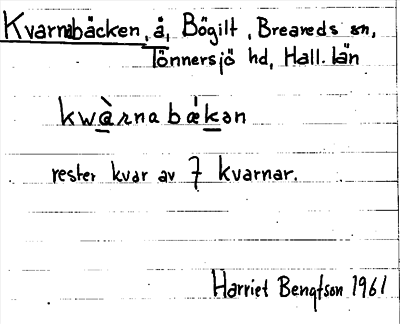 Kvarnabäcken, å, Bögilt, Breareds sn,
Tönnersjö hd, Hall. län
kwàrnabækən
rester kvar av 7 kvarnar.
Harriet Bengtson 1961